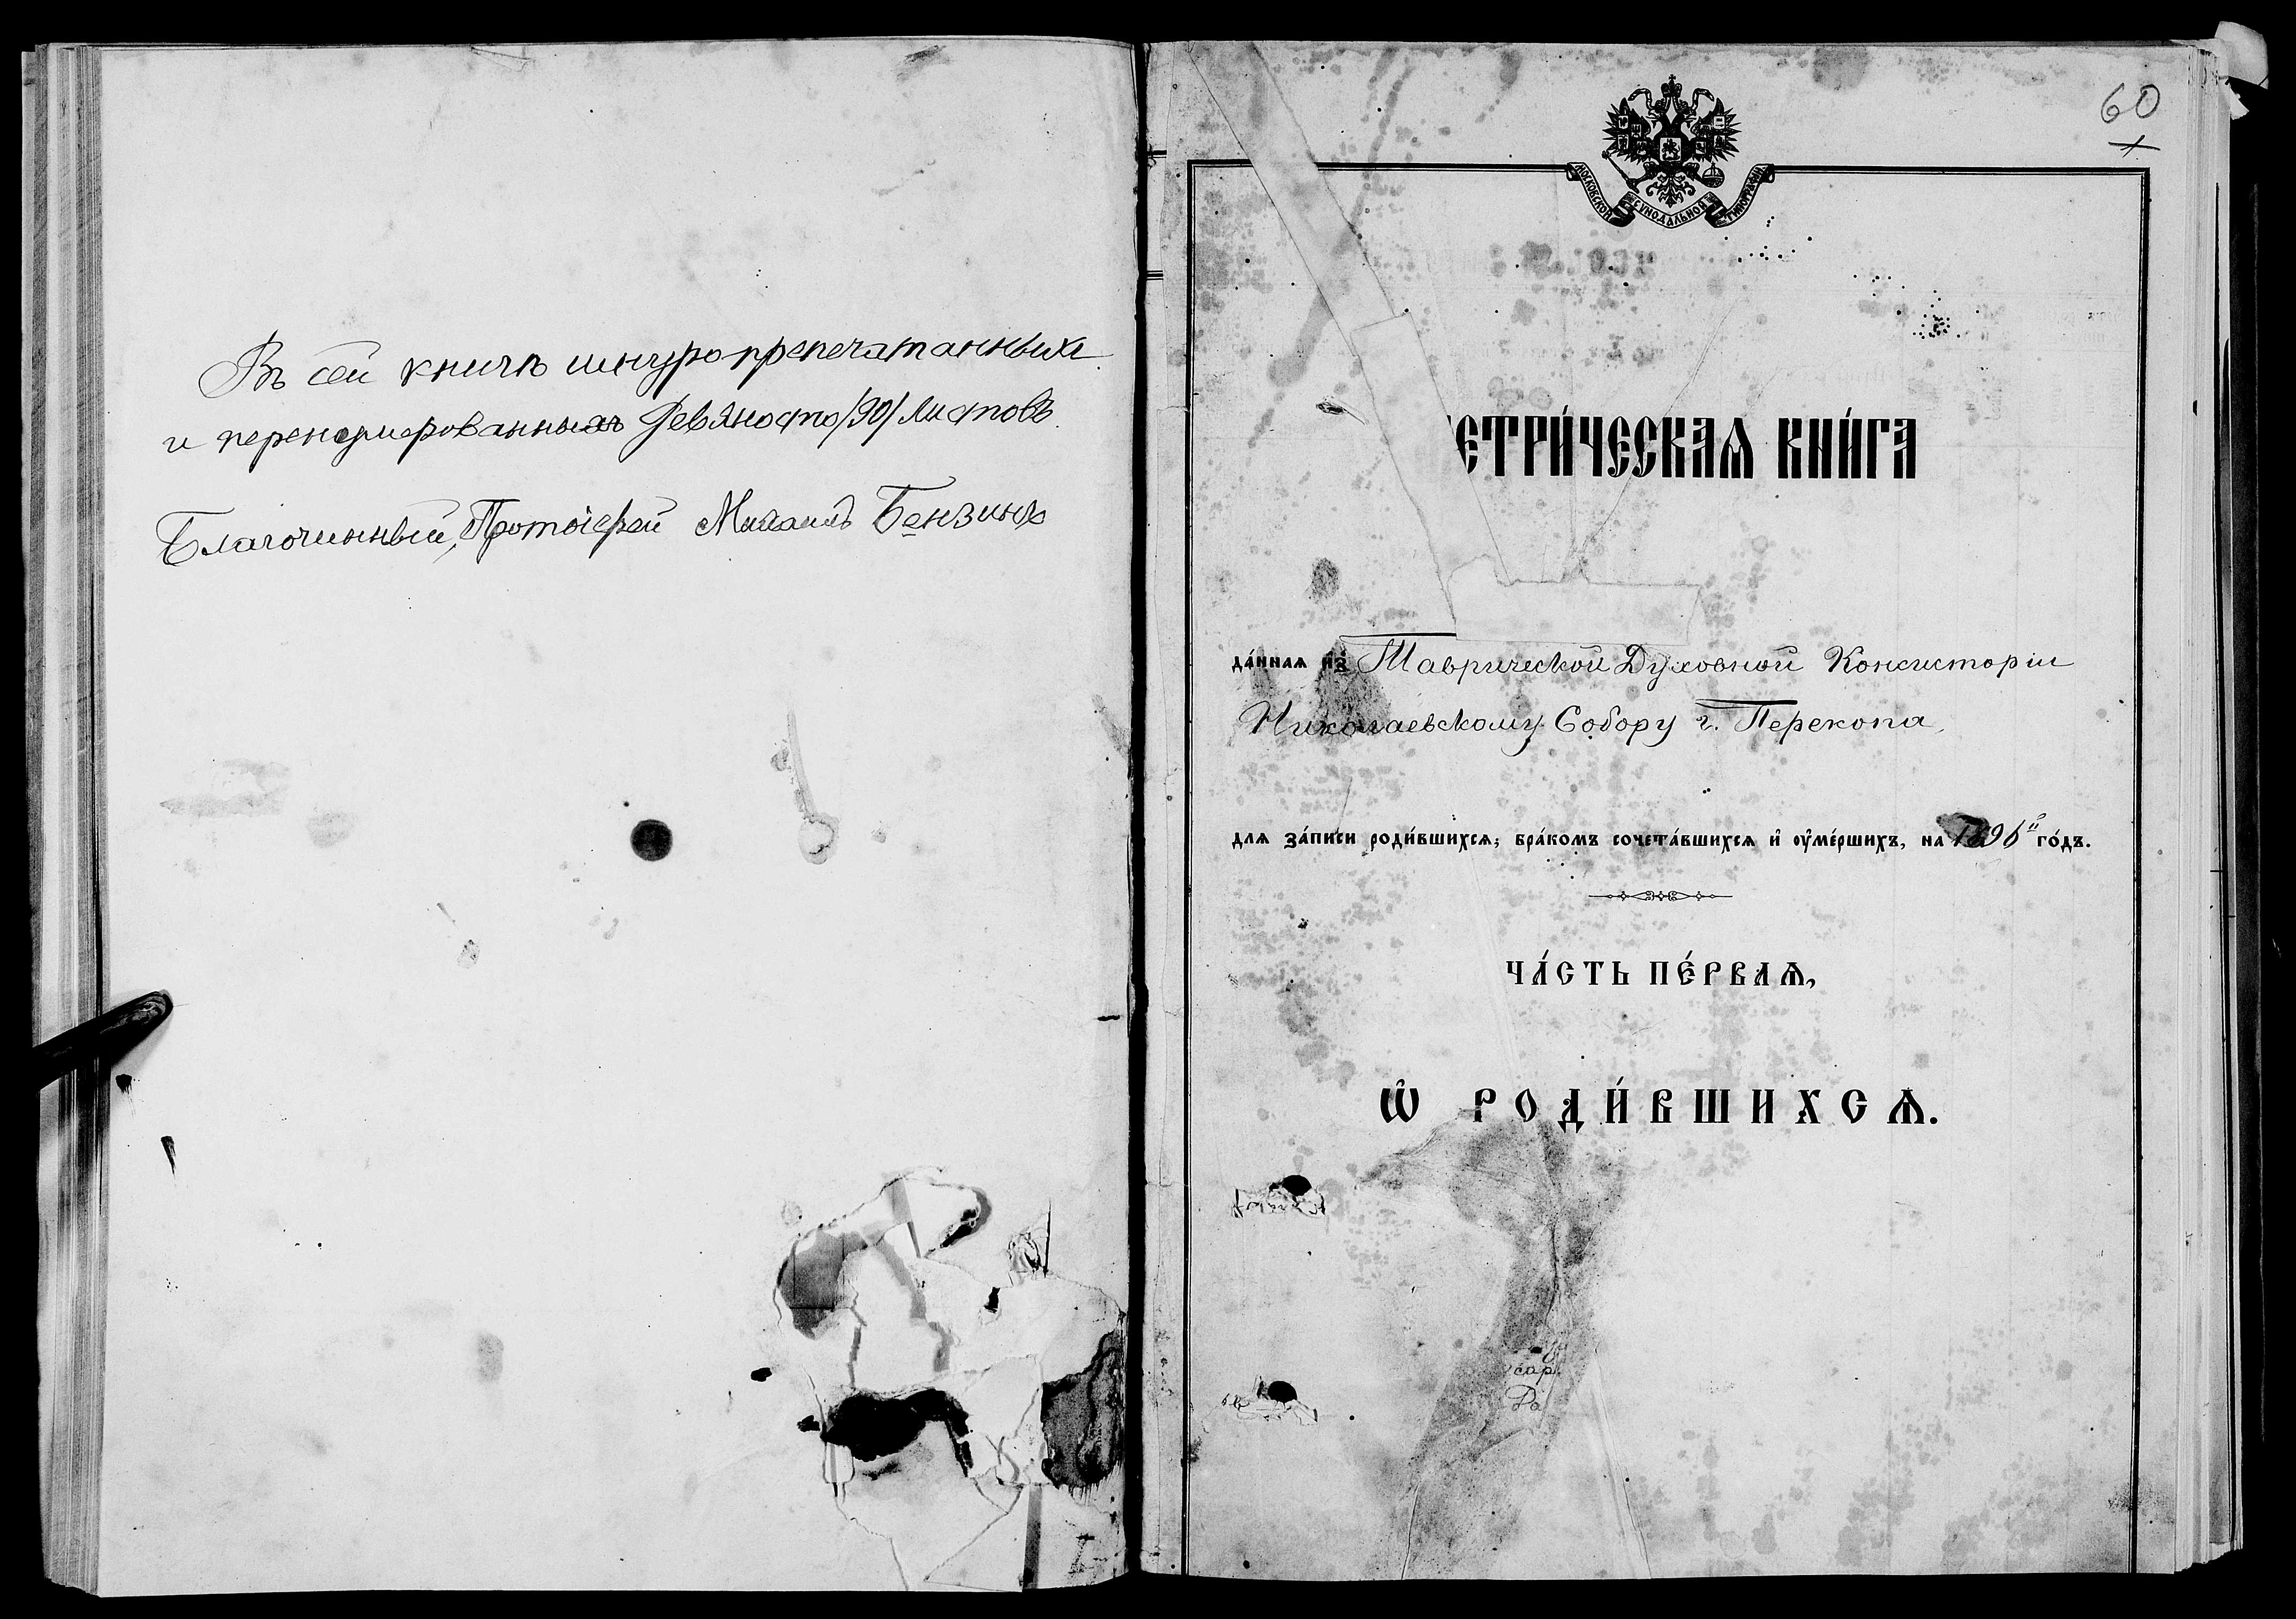 Въ сей книгѣ шнуропрепечатанныхъ
и перенумерованныхъ Девяносто /90/ листовъ.
Благочинный, Протоіерей Михаилъ Бензинъ
60
МОСКОВСКОЙ СУНОДАЛЬНОЙ ТИПОГРАФІИ
ЕТРИ́ЧЕСКАѦ КНИ́ГА
да́ннаѧ из Таврической Духовной Консисторіи
Николаевскому Собору г. Перекопа,
длѧ за́писи роди́вшихсѧ, бра́комъ сочета́вшихсѧ и҆ ᲂу҆ме́ршихъ, на 1896й го́дъ.
ЧА́СТЬ ПЕ́РВАѦ,
Ѽ РОДИ́ВШИХСѦ.